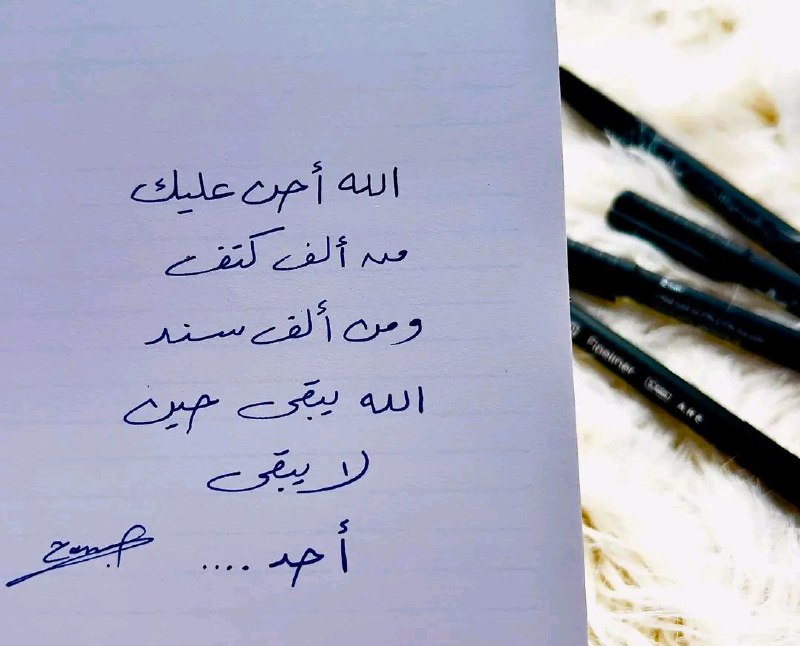 الله أحن عليك
من ألف كتف
ومن ألف سند
الله يبقى حين
لا يبقى
أحد ....
Fineliner